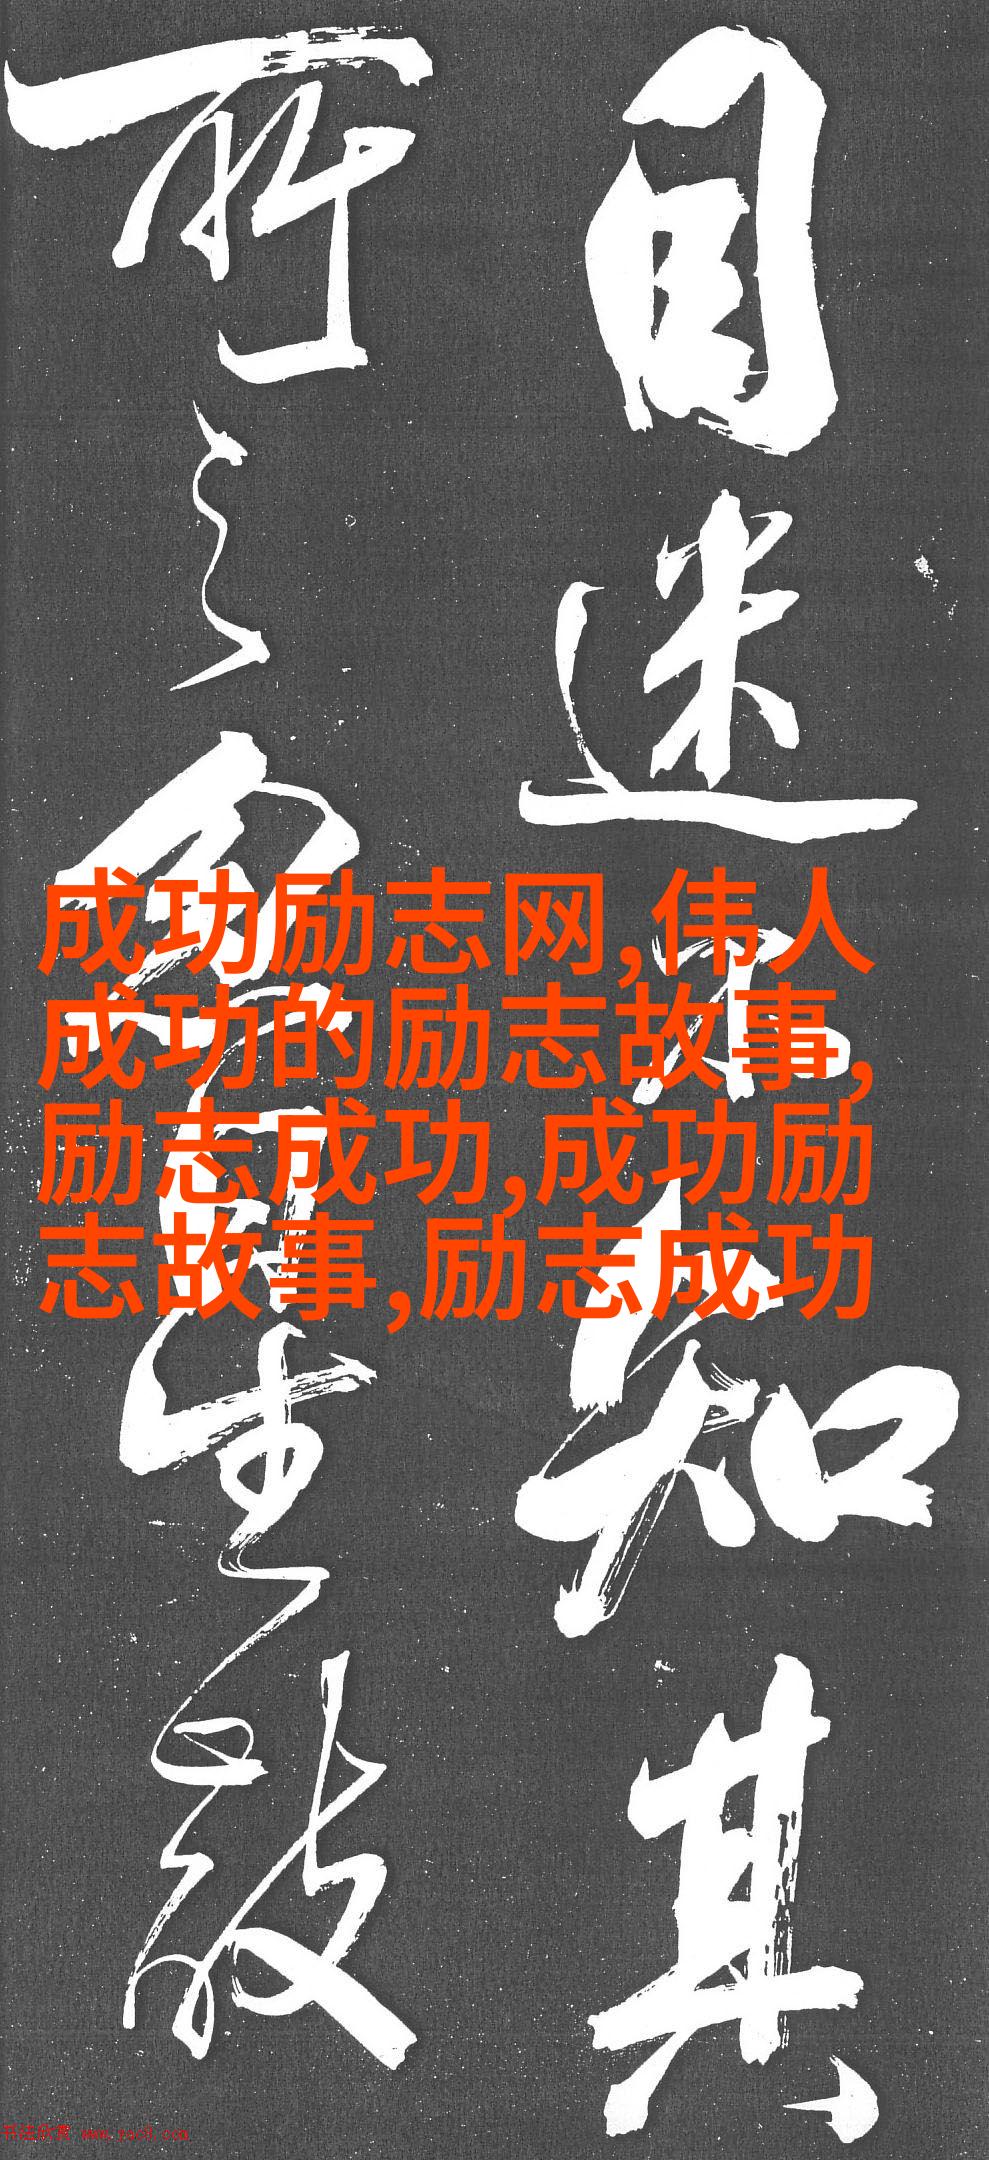 目迷不知其
所之
生
成功励志网,伟人
成功的励志故事,
励志成功,成功励
志故事,励志成功
书法欣赏